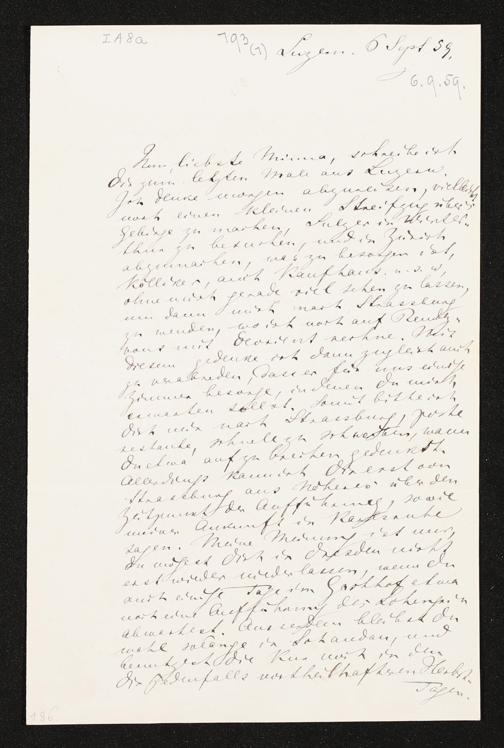 IA8a
793
(1)
Luzern. 6 Sept 59,
6.9.59.
Nun, liebste Minna, schreibe ich
Dir zum letzten Male aus Luzern.
Ich denke morgen abzureisen, vielleicht
noch einen kleinen Streifzug über's
Gebirge zu machen, Sulzer in Winter-
thur zu besuchen, und in Zürich
abzumachen, was zu besorgen ist,
Kölliker, auch Kaufhaus u.s.w,
ohne mich gerade viel sehen zu lassen,
um dann mich nach Strassburg
zu wenden, wo ich noch auf Rendez-
vous mit Devrient rechne. Mit
diesem gedenke ich dann zugleich auch
zu verabreden, dass er für uns einige
Zimmer besorge, in denen Du mich
erwarten sollst. Somit bitte ich
Dich mir nach Strassburg, poste
restante, schnell zu schreiben, wann
Du etwa aufzubrechen gedenkst.
Allerdings kann ich Dir erst von
Strassburg aus Näheres über den
Zeitpunkt der Aufführung, sowie
meiner Ankunft in Karlsruhe
sagen. Meine Meinung ist nur,
Du mögest Dich in Dresden nicht
erst wieder niederlassen, wenn Du
auch einige Tage im Gasthof etwa
noch eine Aufführung des Lohengrin
abwartest. Ausserdem bleibst Du
wohl solange in Schandau, und
benutzest die Kur noch in den
Dir jedenfalls vortheilhafteren Herbst-
Tagen.
186